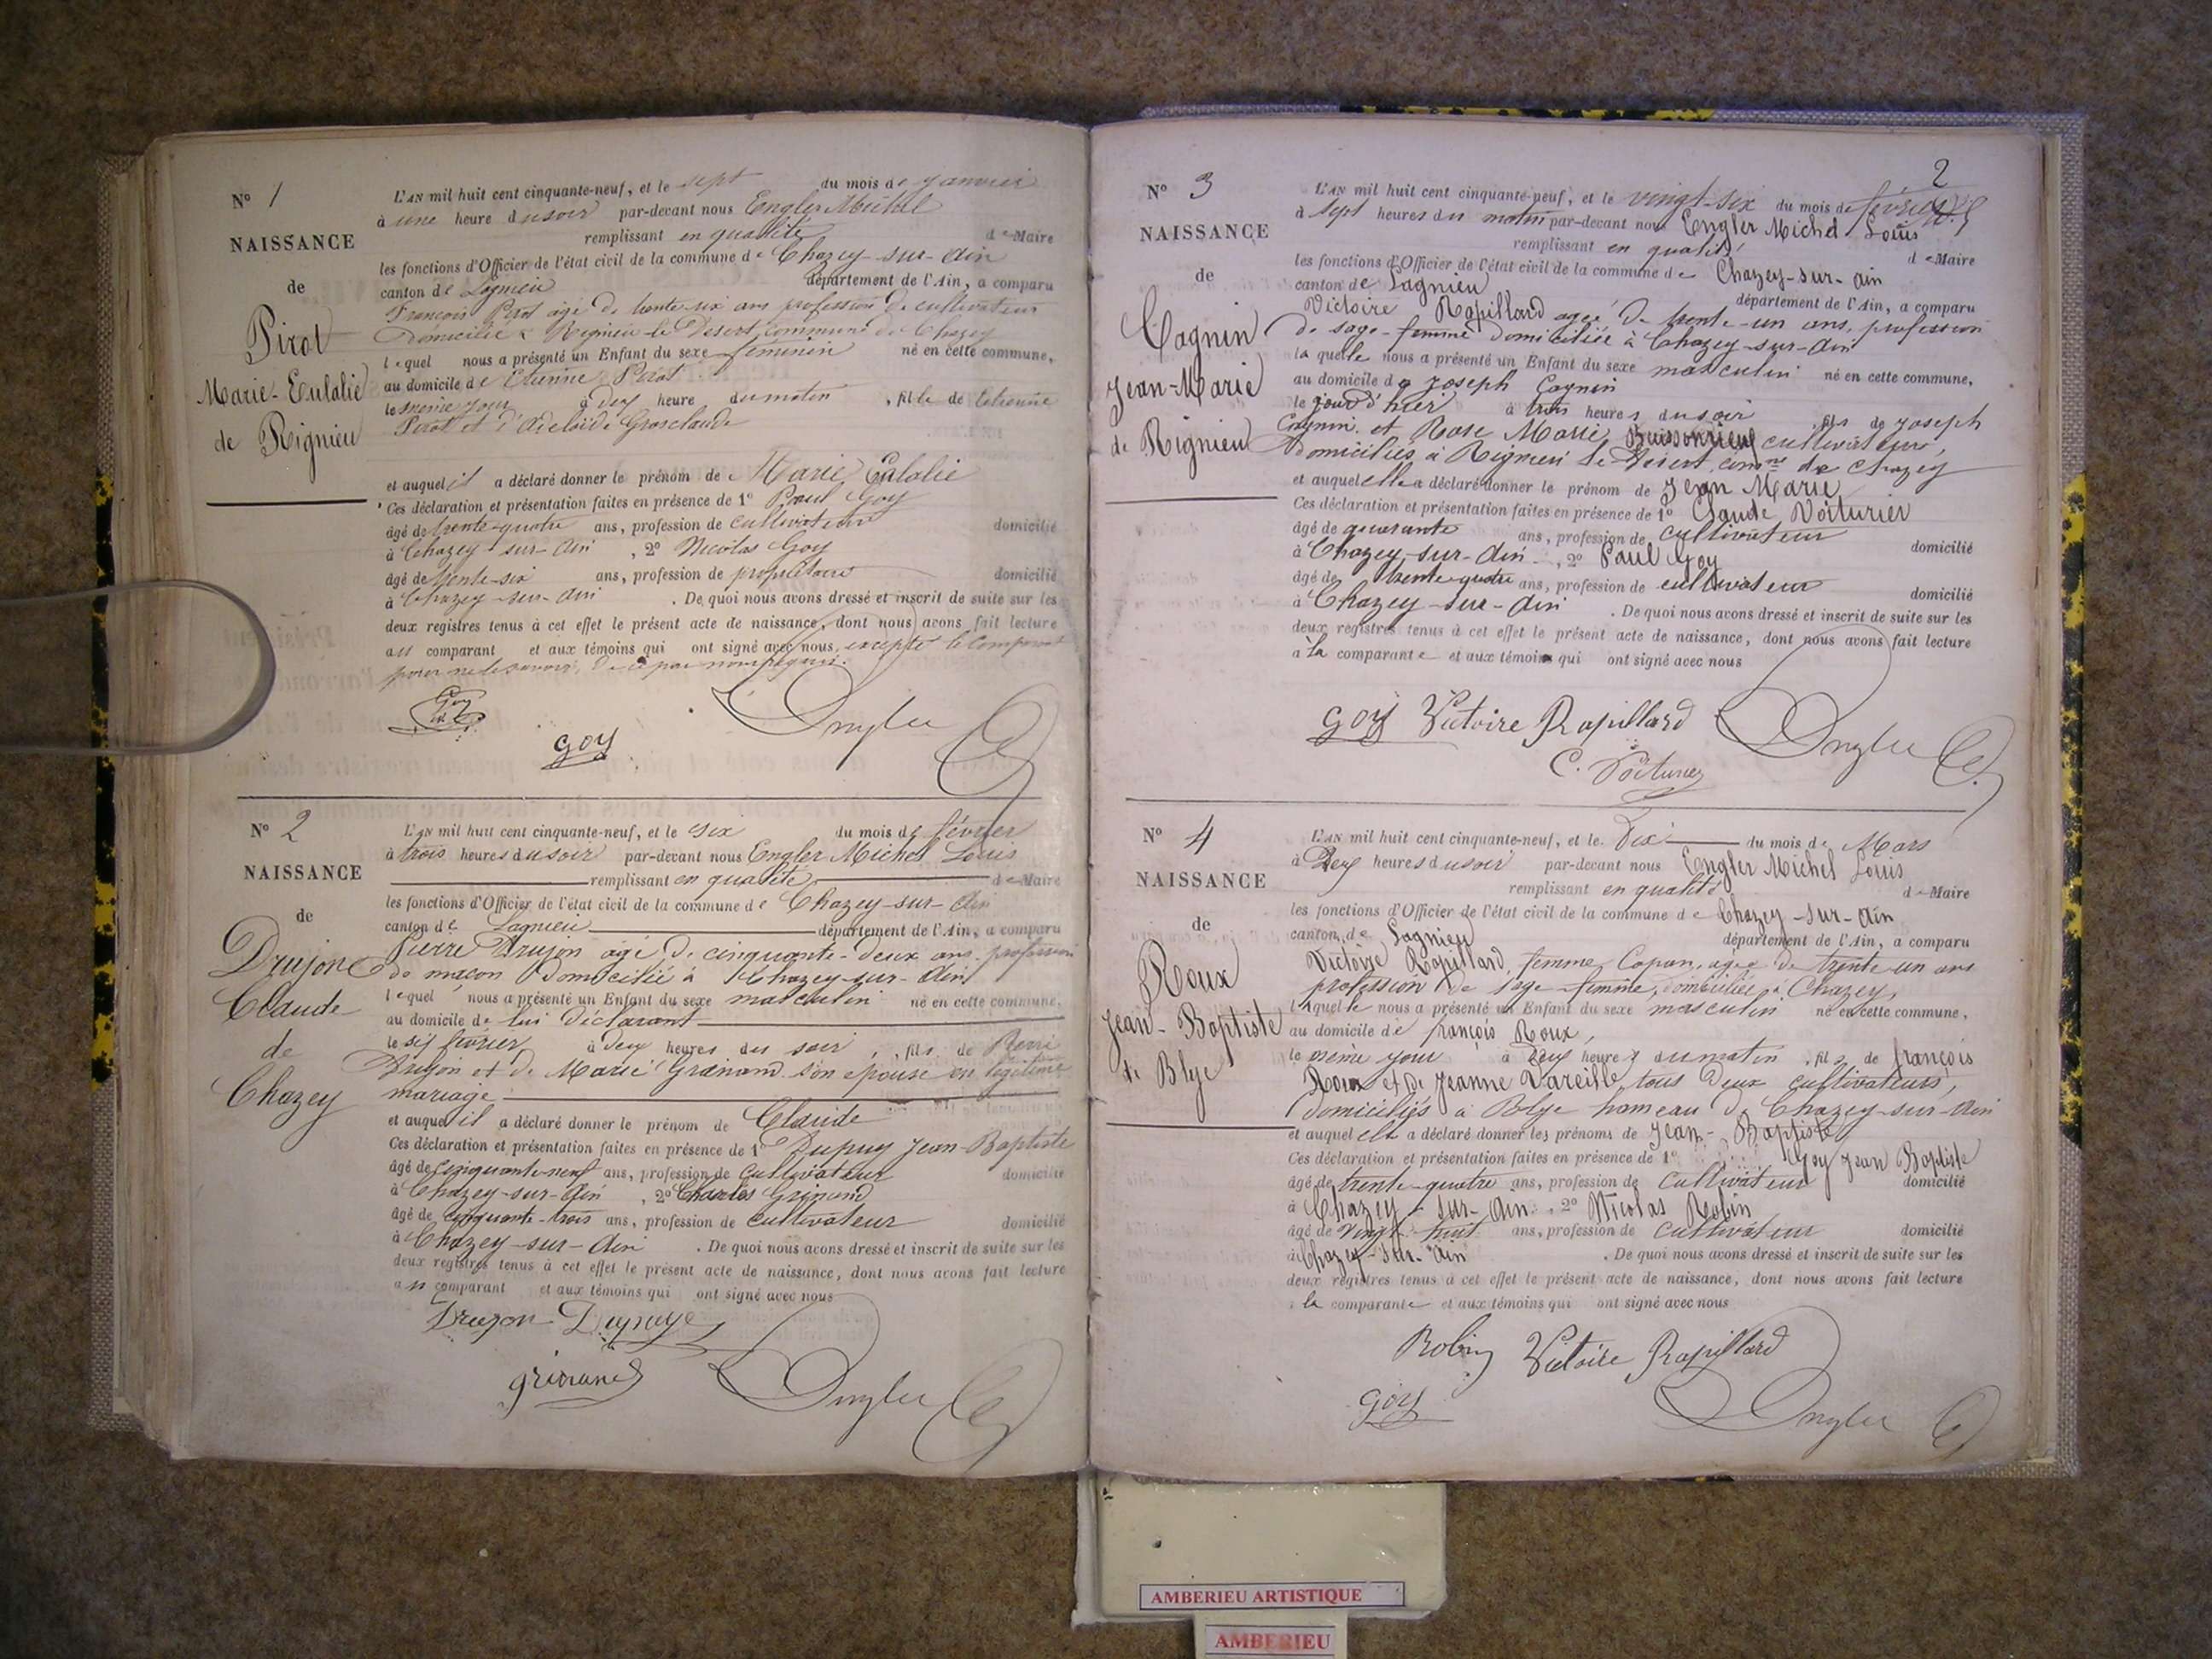 N° 1
NAISSANCE
de
Pirot
Marie-Eulalie
de Rignieu
L'AN mil huit cent cinquante-neuf, et le sept du mois de janvier
à une heure du soir par-devant nous Engler Michel
remplissant en qualité de Maire
les fonctions d'Officier de l'état civil de la commune de Chazey-sur-Ain
canton de Lagnieu département de l'Ain, a comparu
François Pirot âgé de trente-six ans profession de cultivateur
domicilié à Rignieu-le-Désert, commune de Chazey
lequel nous a présenté un Enfant du sexe féminin né en cette commune,
au domicile de Etienne Pirot
le même jour à dix heure du matin, fille de Etienne
Pirot et d'Adelaïde Grosclaude
et auquel il a déclaré donner le prénom de Marie Eulalie
Ces déclaration et présentation faites en présence de 1° Paul Goy
âgé de trente-quatre ans, profession de cultivateur domicilié
à Chazey-sur-Ain, 2° Nicolas Goy
âgé de trente-six ans, profession de propriétaire domicilié
à Chazey-sur-Ain. De quoi nous avons dressé et inscrit de suite sur les
deux registres tenus à cet effet le présent acte de naissance, dont nous avons fait lecture
au comparant et aux témoins qui ont signé avec nous, excepté le comparant
pour ne le savoir, de ce par nous requis.
Goy
goy
Engler
N° 2
NAISSANCE
de
Drujon
Claude
de
Chazey
L'AN mil huit cent cinquante-neuf, et le six du mois de février
à trois heures du soir par-devant nous Engler Michel Louis
remplissant en qualité de Maire
les fonctions d'Officier de l'état civil de la commune de Chazey-sur-Ain
canton de Lagnieu département de l'Ain, a comparu
Pierre Drujon âgé de cinquante-deux ans profession
de maçon domicilié à Chazey-sur-Ain
lequel nous a présenté un Enfant du sexe masculin né en cette commune,
au domicile de lui déclarant
le six février à deux heures du soir, fils de Pierre
Drujon et de Marie Grinand son épouse en légitime
mariage
et auquel il a déclaré donner le prénom de Claude
Ces déclaration et présentation faites en présence de 1° Dupuy Jean-Baptiste
âgé de cinquante-neuf ans, profession de cultivateur domicilié
à Chazey-sur-Ain, 2° Charles Grinand
âgé de cinquante-trois ans, profession de cultivateur domicilié
à Chazey-sur-Ain. De quoi nous avons dressé et inscrit de suite sur les
deux registres tenus à cet effet le présent acte de naissance, dont nous avons fait lecture
au comparant et aux témoins qui ont signé avec nous
Drujon Dupuye
grinand
Engler
2
N° 3
NAISSANCE
de
Cagnin
Jean-Marie
de Rignieu
L'AN mil huit cent cinquante-neuf, et le vingt-six du mois de février
à sept heures du matin par-devant nous Engler Michel Louis
remplissant en qualité de Maire
les fonctions d'Officier de l'état civil de la commune de Chazey-sur-Ain
canton de Lagnieu département de l'Ain, a comparu
Victoire Rapillard agée de trente-un ans, profession
de sage-femme domiciliée à Chazey-sur-Ain
laquelle nous a présenté un Enfant du sexe masculin né en cette commune,
au domicile de Joseph Cagnin
le jour d'hier à trois heures du soir, fils de Joseph
Cagnin et Rose Marie cultivateurs,
domiciliés à Rignieu le Désert, comne de Chazey
et auquel elle a déclaré donner le prénom de Jean Marie
Ces déclaration et présentation faites en présence de 1° Claude Voiturier
âgé de quarante ans, profession de cultivateur domicilié
à Chazey-sur-Ain, 2° Paul Goy
âgé de trente-quatre ans, profession de cultivateur domicilié
à Chazey-sur-Ain. De quoi nous avons dressé et inscrit de suite sur les
deux registres tenus à cet effet le présent acte de naissance, dont nous avons fait lecture
a la comparante et aux témoins qui ont signé avec nous
goy Victoire Rapillard Engler
C. Voiturier
N° 4
NAISSANCE
de
Roux
Jean-Baptiste
de Blye
L'AN mil huit cent cinquante-neuf, et le Dix du mois de Mars
à Dix heures du soir par-devant nous Engler Michel Louis
remplissant en qualité de Maire
les fonctions d'Officier de l'état civil de la commune de Chazey-sur-Ain
canton de Lagnieu département de l'Ain, a comparu
Victoire Rapillard, femme Copan, agée de trente-un ans
profession de sage-femme, domiciliée à Chazey,
laquelle nous a présenté un Enfant du sexe masculin né en cette commune,
au domicile de françois Roux,
le même jour à dix heures du matin, fils de françois
Roux et de Jeanne Vareille, tous deux cultivateurs,
domiciliés à Blye hameau de Chazey-sur-Ain
et auquel elle a déclaré donner les prénoms de Jean-Baptiste
Ces déclaration et présentation faites en présence de 1° Goy Jean Baptiste
âgé de trente-quatre ans, profession de cultivateur domicilié
à Chazey-sur-Ain, 2° Nicolas Robin
âgé de vingt-huit ans, profession de cultivateur domicilié
à Chazey-sur-Ain. De quoi nous avons dressé et inscrit de suite sur les
deux registres tenus à cet effet le présent acte de naissance, dont nous avons fait lecture
à la comparante et aux témoins qui ont signé avec nous
Robin Victoire Rapillard
goy Engler
AMBERIEU ARTISTIQUE
AMBERIEU